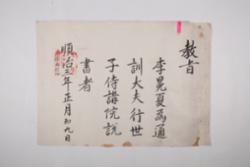 敎旨
李晃夏爲通
訓大夫行世
子侍講院說
書者
順治三年正月初九日